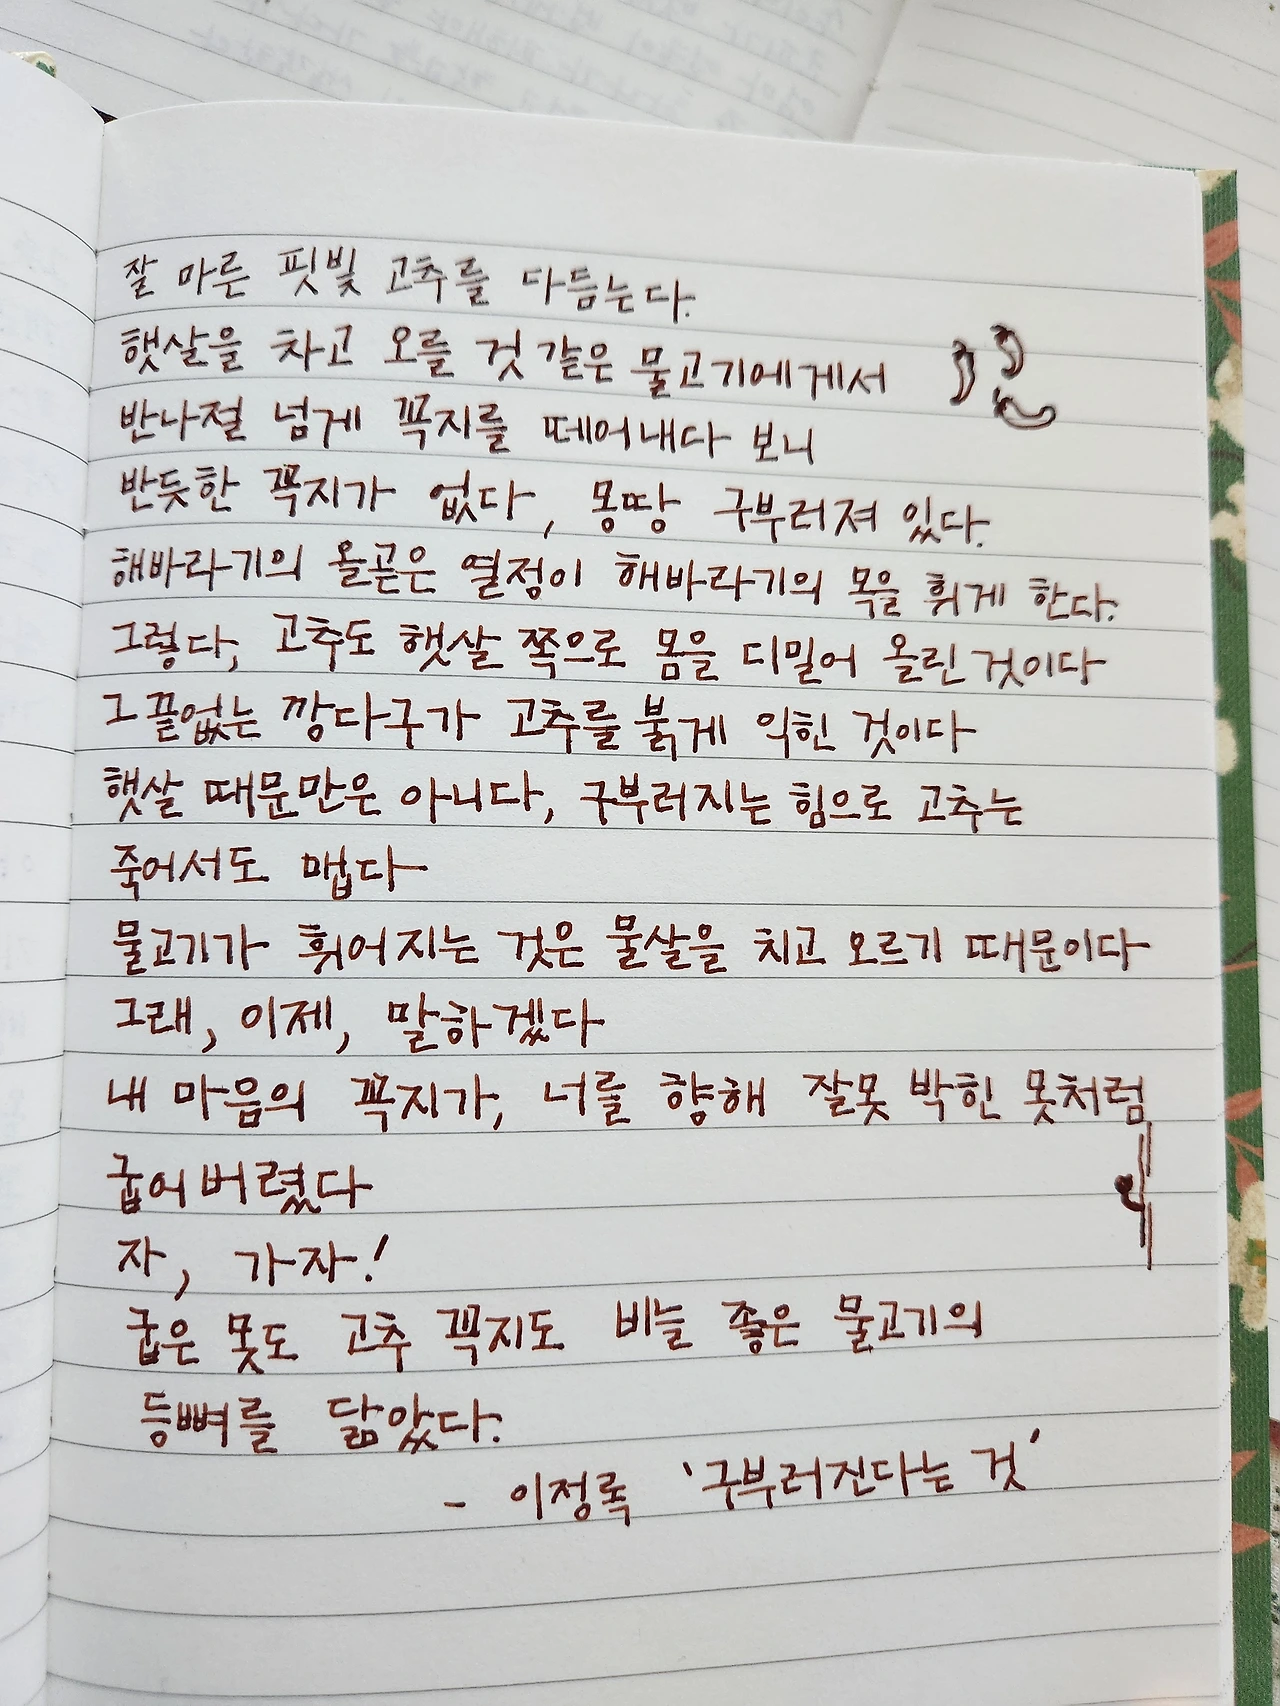 잘 마른 핏빛 고추를 다듬는다.
햇살을 차고 오를 것 같은 물고기에게서
반나절 넘게 꼭지를 떼어내다 보니
반듯한 꼭지가 없다, 몽땅 구부러져 있다.
해바라기의 올곧은 열정이 해바라기의 목을 휘게 한다.
그렇다, 고추도 햇살 쪽으로 몸을 디밀어 올린 것이다
그 끝없는 깡다구가 고추를 붉게 익힌 것이다
햇살 때문만은 아니다, 구부러지는 힘으로 고추는
죽어서도 맵다
물고기가 휘어지는 것은 물살을 치고 오르기 때문이다
그래, 이제, 말하겠다
내 마음의 꼭지가, 너를 향해 잘못 박힌 못처럼
굽어버렸다
자, 가자!
굽은 못도 고추 꼭지도 비늘 좋은 물고기의
등뼈를 닮았다.
- 이정록 '구부러진다는 것'